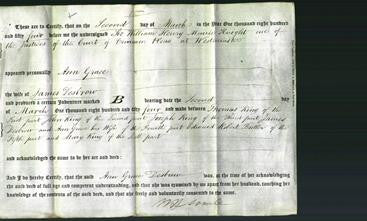 These are to Certify, that on the Second day of March in the Year One thousand eight hundred
and fifty four before me the undersigned Sir William Henry Maule Knight one of
the Justices of the Court of Common Pleas at Westminster
appeared personally Ann Grace
the wife of James Destrow
and produced a certain Indenture marked B bearing date the Second day
of March One thousand eight hundred and fifty four and made between Thomas King of the
first part John King of the second part Joseph King of the third part James
Destrow and Ann Grace his Wife of the fourth part Edward Robert of the
fifth part and Mary King of the sixth part
and acknowledged the same to be her act and deed:
And I do hereby Certify, that the said Ann Grace Destrow was, at the time of her acknowledging
the said deed of full age and competent understanding, and that she was examined by me apart from her husband, touching
her knowledge of the contents of the said deed, and that she freely and voluntarily consented to the same.